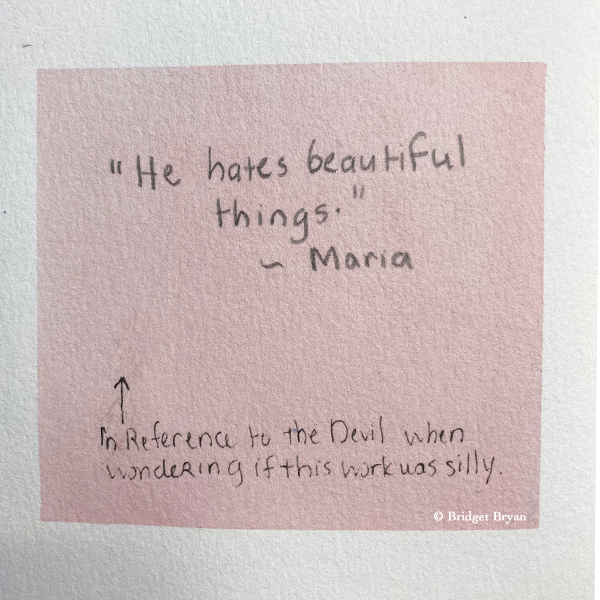 "He hates beautiful
things."
~ Maria
↑
In Reference to the Devil when
wondering if this work was silly.
© Bridget Bryan